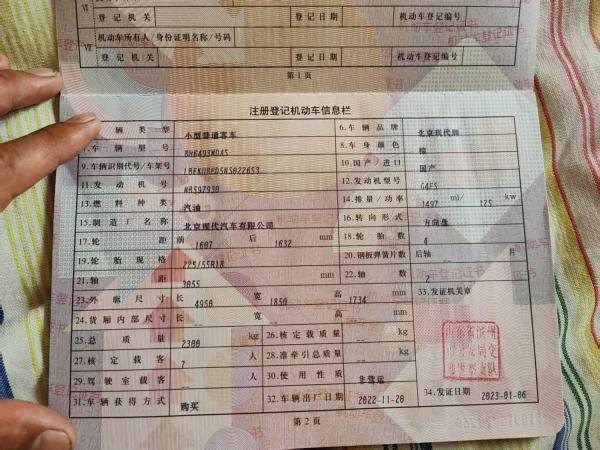 Ⅵ
登记机关 登记日期 机动车登记编号
机动车所有人/身份证明名称/号码
Ⅶ
登记机关 登记日期 机动车登记编号
第1页
注册登记机动车信息栏
辆类型 小型普通客车 6.车辆品牌 北京现代牌
车辆型号 BH6493MDAS 8.车身颜色 棕
9.车辆识别代号/车架号 10.国产/进口 国产
11.发动机号 12.发动机型号 G4FS
13.燃料种类 汽油 14.排量/功率 1497 ml/ 125 kw
15.制造厂名称 北京现代汽车有限公司 16.转向形式 方向盘
17.轮距 前 1607 后 1632 mm 18.轮胎数 4
19.轮胎规格 225/55R18 20.钢板弹簧片数 后轴 -- 片
21.轴距 3055 mm 22.轴数 2
23.外廓尺寸 长 4950 宽 1850 高 1734 mm 33.发证机关章
24.货厢内部尺寸 长 -- 宽 -- 高 -- mm
25.总质量 2300 kg 26.核定载质量 -- kg
27.核定载客 7 人 28.准牵引总质量 -- kg
29.驾驶室载客 -- 人 30.使用性质 非营运
31.车辆获得方式 购买 32.车辆出厂日期 2022-11-20 34.发证日期 2023-01-06
第2页